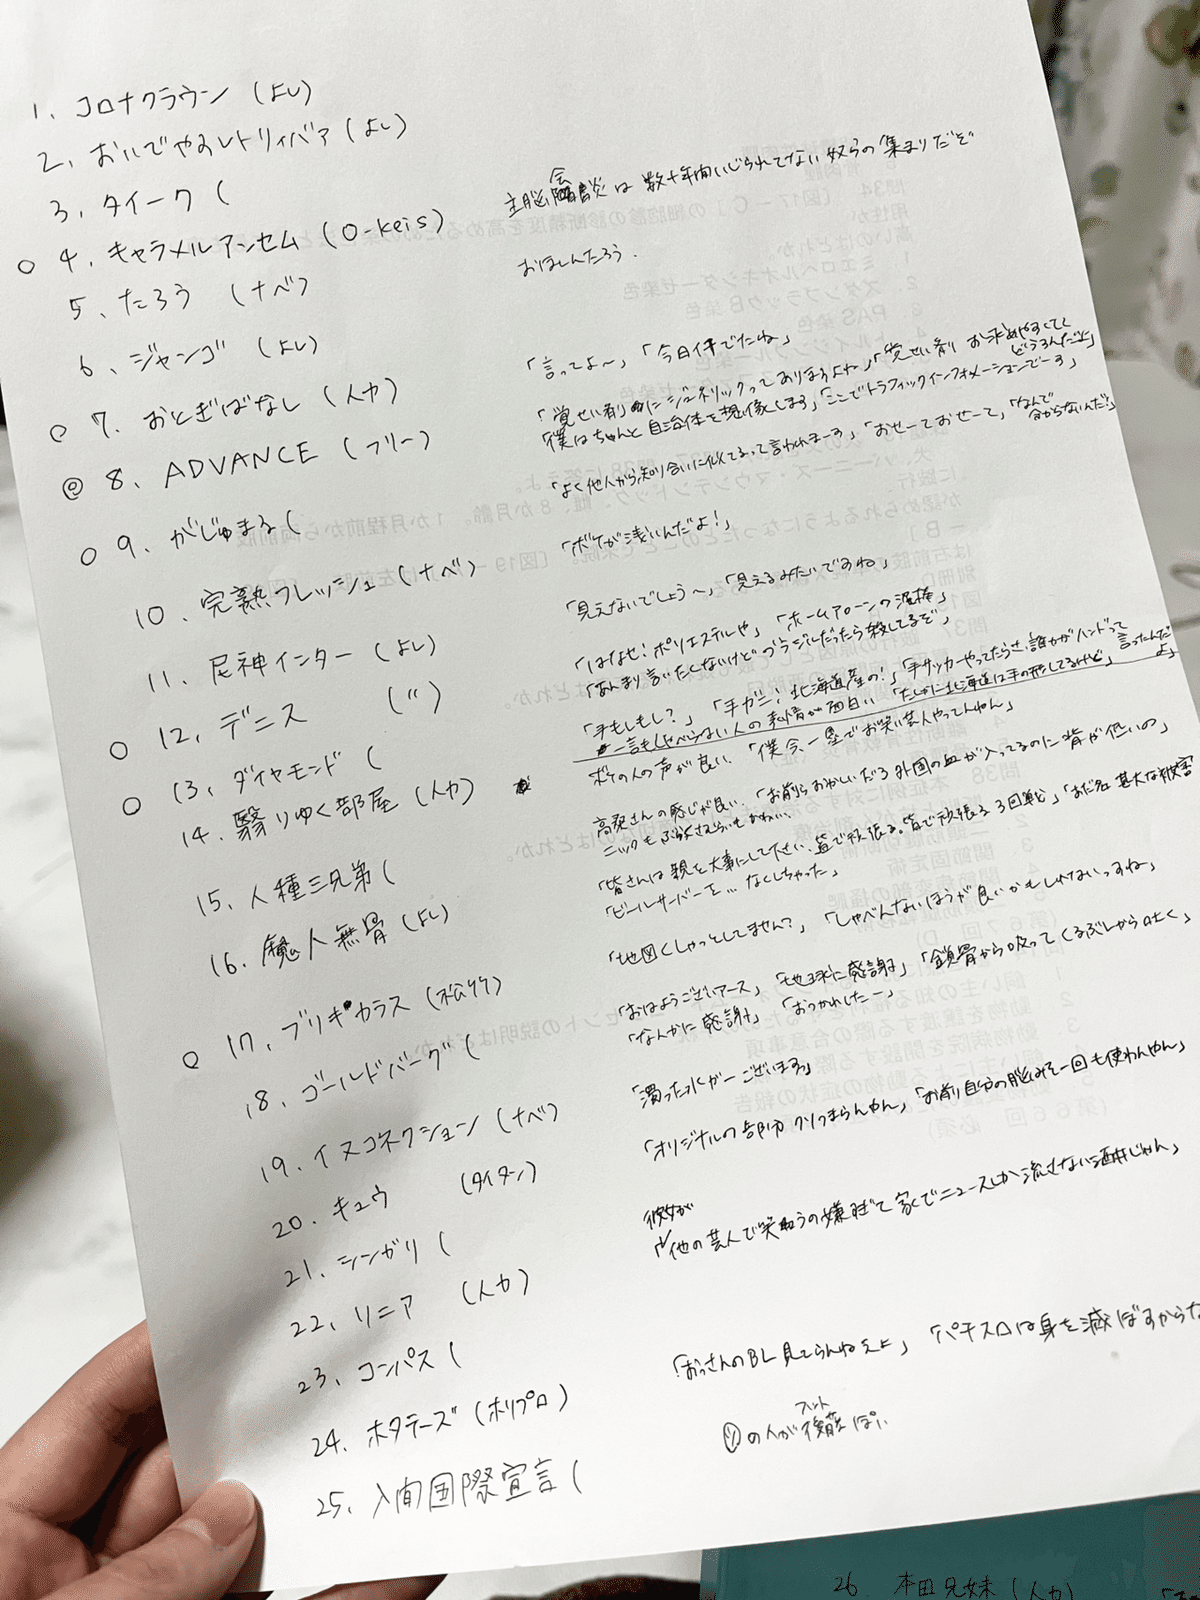 1. コロナクラウン (よし)
2. おいでやすレトリィバァ (よし)
3. タイーク (
主脳会談は数十年間いじられてない奴らの集まりだぞ
○ 4. キャラメルアンセム (O-keis)
おほしんたろう.
5. たろう (ナベ)
6. ジャンゴ (よし)
「言ってよ〜」「今日イチでたね」
○ 7. おとぎばなし (人力)
「覚せい剤にジェネリックってありますよね」「覚せい剤 お求めやすくてどうるんだよ」
「僕はちゃんと自治体を想像します」「ここでトラフィックインフォメーションでーす」
◎ 8. ADVANCE (フリー)
「よく他人から知り合いに似てるって言われまーす」「おせーておせーて」「なんで分からないんだ!」
○ 9. がじゅまる (
「ボケが浅いんだよ!」
10. 完熟フレッシュ (ナベ)
「見えないでしょう〜」「見えるみたいですね」
11. 尼神インター (よし)
「はなせ! ポリエステルや」「ホームアローンの泥棒」
「あんまり言いたくないけどブラジルだったら殺してるぞ」
○ 12. デニス (〃)
「手もしもし?」「手ガニ! 北海道産の!」「手サッカーやってたらさ、誰かがハンドって言ったんだよ」
一言もしゃべらない人の表情が面白い「たしかに北海道は手の形してるけど」
○ 13. ダイヤモンド (
ボケの人の声が良い.「僕今、一塁でお笑い芸人やってんねん」
14. 翳りゆく部屋 (人力)
高梨さんの感じが良い.「お前らおかしいだろ 外国の血が入ってるのに背が低いの」
15. 人種三兄弟 (
「皆さんは親を大事にして下さい、皆で頑張る。皆で頑張る3回戦」「あだ名 甚大な被害」
「ビールサーバーを… なくしちゃった」
16. 魔人無骨 (よし)
「地図くしゃっとしてません?」「しゃべんないほうが良いかもしれないっすね」
○ 17. ブリキカラス (松竹)
「おはようございアース」「地球に感謝」「鎖骨から吸ってくるぶしから吐く」
「なんかに感謝」「おつかれしたー」
18. ゴールドバーグ (
「濁った水がーございます」
19. イヌコネクション (ナベ)
「オリジナルの部分 クソつまらんやん」「お前自分の脳みそ一回も使わんやん」
20. キュウ (タイタン)
21. シンガリ (
彼女が
「他の芸人で笑うの嫌すぎて家でニュースしか流さない酒井じゃん」
22. リニア (人力)
23. コンパス (
「おっさんのBL見てらんねえよ」「パチスロは身を滅ぼすからな
24. ホタテーズ (ホリプロ)
ツの人がフット後藤ぽい
25. 入間国際宣言 (
26. 本田兄妹 (人力)